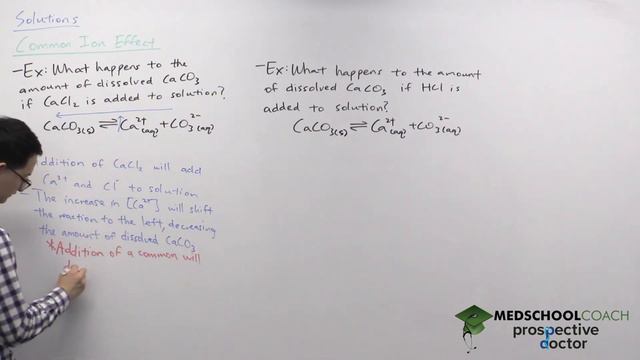 Solutions
Common Ion Effect
-Ex: What happens to the
amount of dissolved CaCO3
if CaCl2 is added to solution?
CaCO3(s) ⇌ Ca2+(aq) + CO3 2-(aq)
ddition of CaCl2 will add
Ca2+ and Cl- to solution
- The increase in [Ca2+] will shift
the reaction to the left, decreasing
the amount of dissolved CaCO3
*Addition of a common will
-Ex: What happens to the amount
of dissolved CaCO3 if HCl is
added to solution?
CaCO3(s) ⇌ Ca2+(aq) + CO3 2-(aq)
MEDSCHOOLCOACH
prospective
doctor